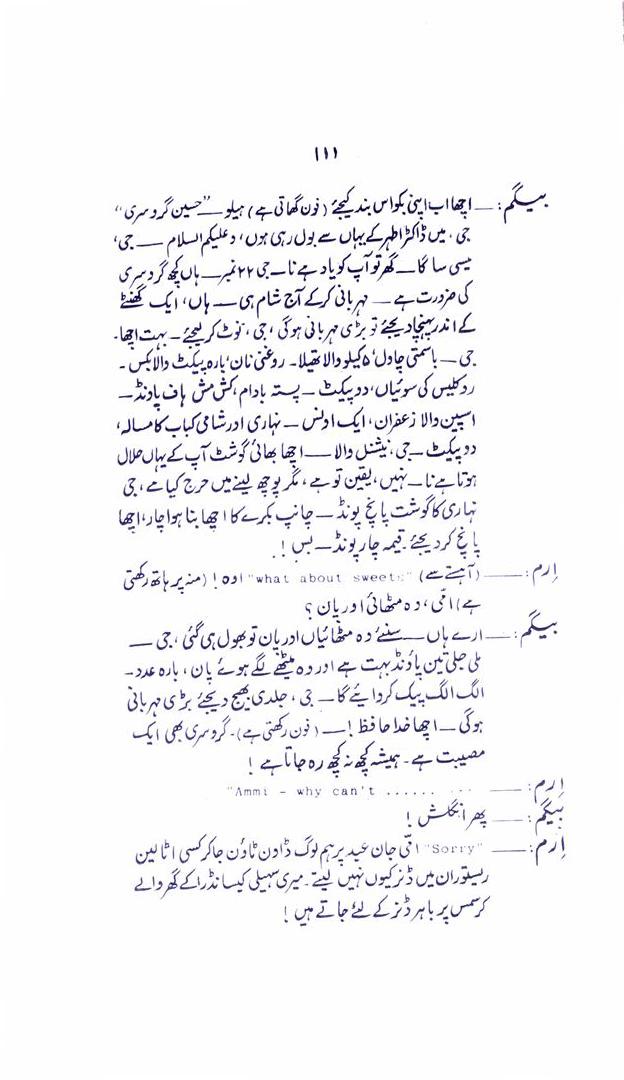 ۱۱۱
بیگم: ــــ اچھا اب اپنی بکواس بند کیجئے (فون گھماتی ہے) ہیلو ــ "حسین گروسری"
جی، میں ڈاکٹر اطہر کے یہاں سے بول رہی ہوں، وعلیکم السلام ــــ جی،
میسی ساگا ــ گھر تو آپ کو یاد ہے نا ــ جی ۲۲ نمبر ــ ہاں کچھ گروسری
کی ضرورت ہے ــ مہربانی کرکے آج شام ہی ــ ہاں، ایک گھنٹے
کے اندر پہنچا دیجئے تو بڑی مہربانی ہوگی، جی، نوٹ کر لیجئے ــ بہت اچھا۔
جی ــ باسمتی چاول، ۵ کیلو والا تھیلا۔ روغنی نان، بارہ پیکٹ والا بکس۔
رد کلیس کی سوئیاں، دو پیکٹ ــ پستہ بادام، کش مش ہاف پاونڈ ــ
اسپین والا زعفران، ایک اونس ــ نہاری اور شامی کباب کا مسالہ،
دو پیکٹ ــ جی، نیشنل والا ــــ اچھا بھائی گوشت آپ کے یہاں حلال
ہوتا ہے نا ــ نہیں، یقین تو ہے، مگر پوچھ لینے میں حرج کیا ہے، جی
نہاری کا گوشت پانچ پونڈ ــ چانپ بکرے کا اچھا بنا ہوا چار، اچھا
پانچ کر دیجئے۔ قیمہ چار پونڈ ــ بس!
اِرم: ــــ (آہستے سے) "what about sweets" اوہ! (منہ پر ہاتھ رکھتی
ہے) امّی، وہ مٹھائی اور پان؟
بیگم: ــــ ارے ہاں ــ سنئے وہ مٹھائیاں اور پان تو بھول ہی گئی، جی ــ
ملی جلی تین پاؤنڈ بہت ہے اور وہ میٹھے لگے ہوئے پان، بارہ عدد۔
الگ الگ پیک کروایئے گا ــ جی، جلدی بھیج دیجئے بڑی مہربانی
ہوگی ــ اچھا خدا حافظ! ــ (فون رکھتی ہے)۔ گروسری بھی ایک
مصیبت ہے۔ ہمیشہ کچھ نہ کچھ رہ جاتا ہے!
اِرم: ــــ "Ammi - why can't ...... ...
بیگم: ــــ پھر انگلش!
اِرم: ــــ "Sorry" امّی جان عید پر ہم لوگ ڈاون ٹاؤن جا کر کسی اٹالین
ریسٹوران میں ڈنر کیوں نہیں لیتے۔ میری سہیلی کیسانڈرا کے گھر والے
کرسمس پر باہر ڈنر کے لئے جاتے ہیں!